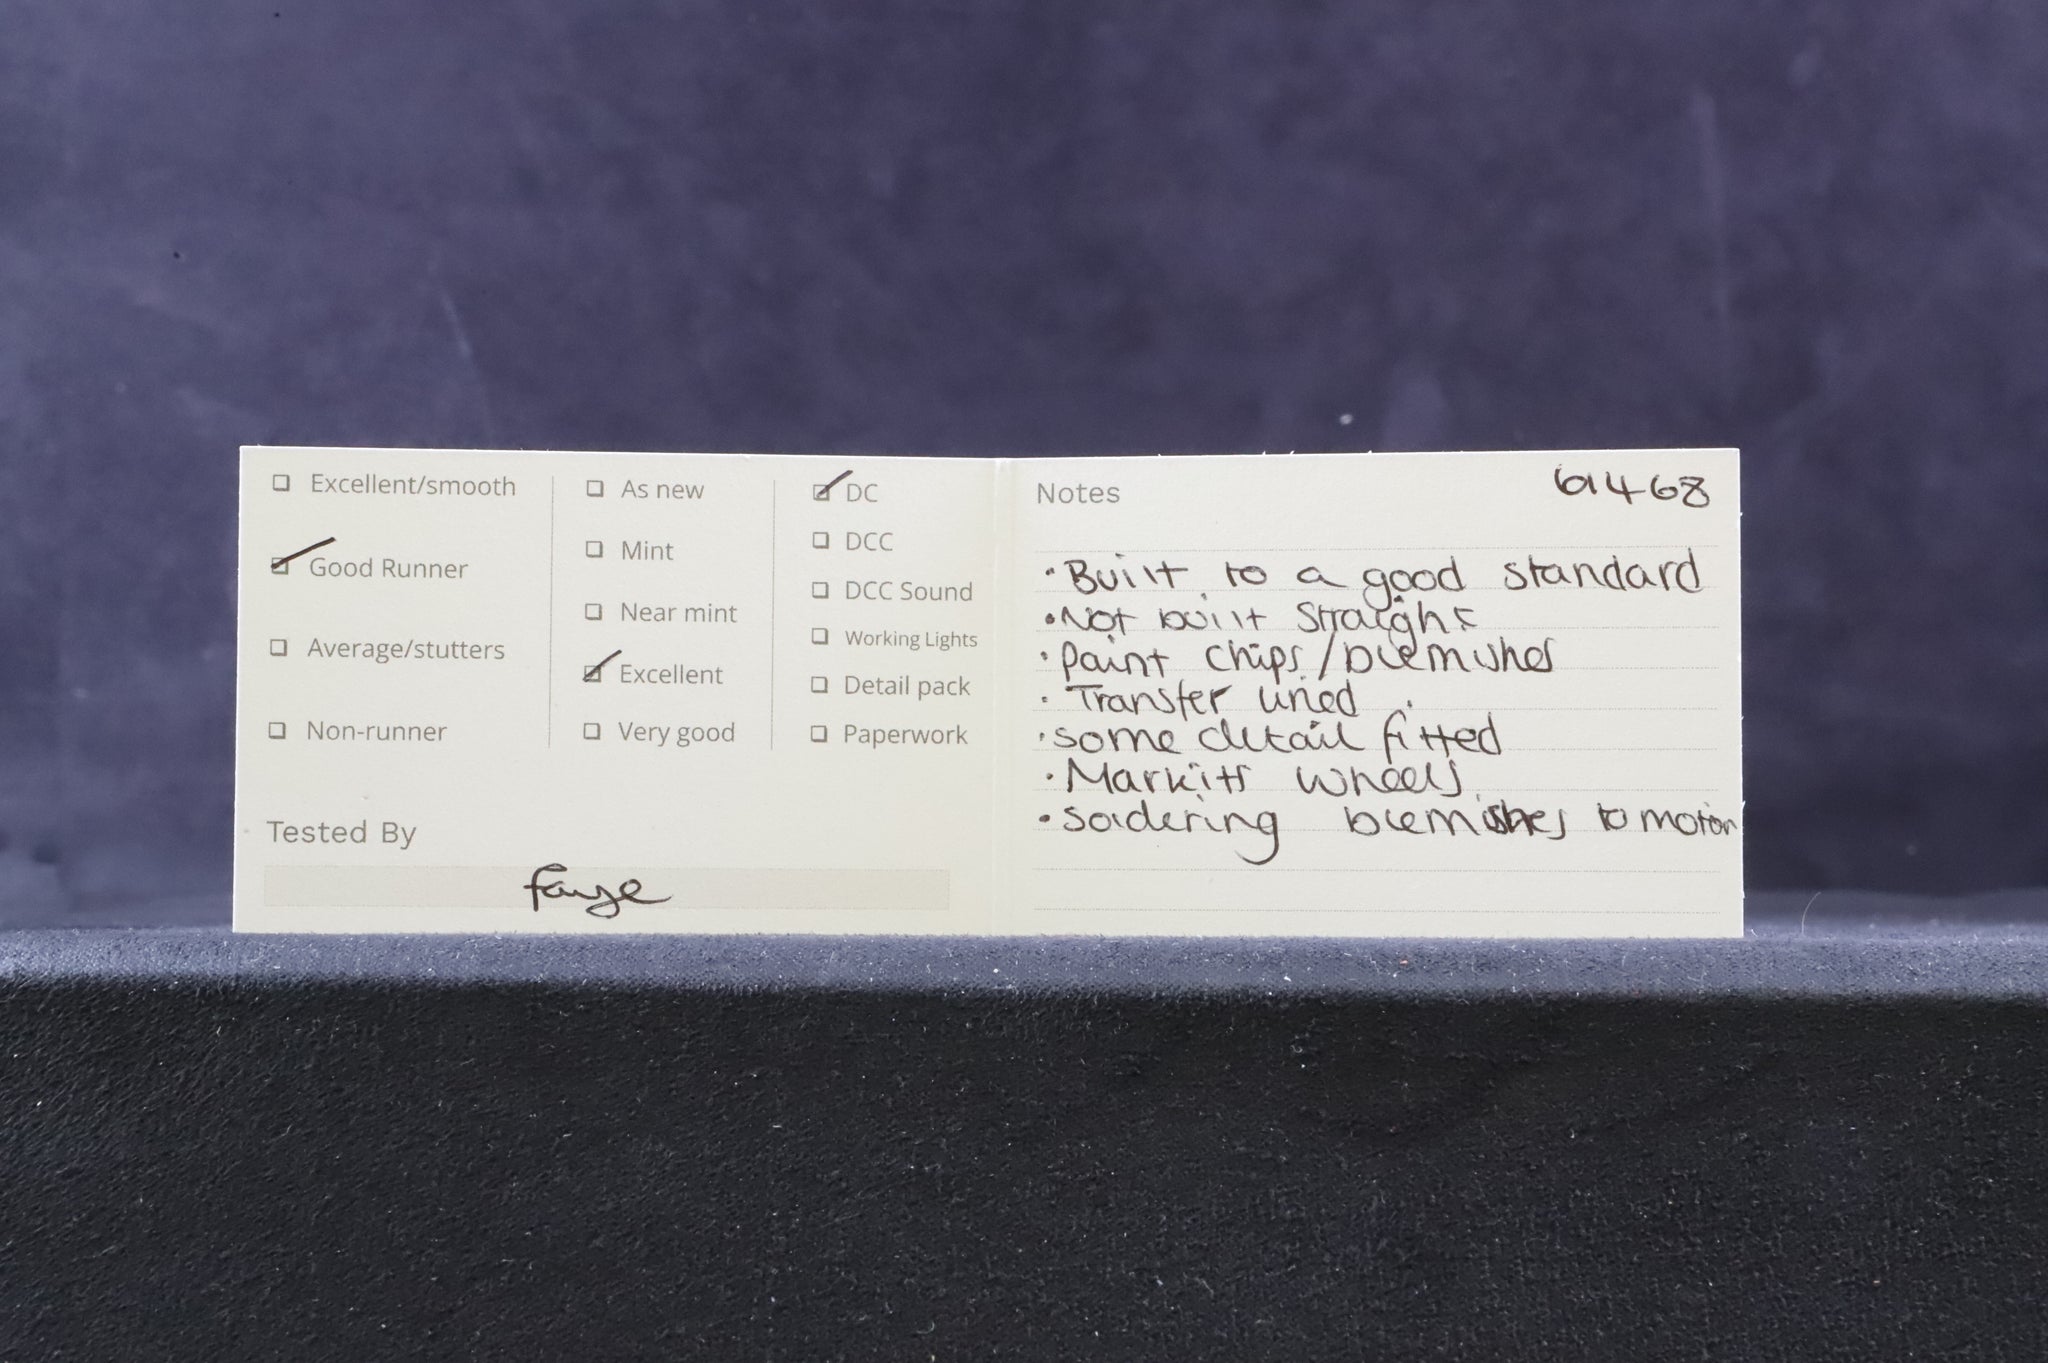 ☐ Excellent/smooth
☑ Good Runner
☐ Average/stutters
☐ Non-runner
☐ As new
☐ Mint
☐ Near mint
☑ Excellent
☐ Very good
☑ DC
☐ DCC
☐ DCC Sound
☐ Working Lights
☐ Detail pack
☐ Paperwork
Tested By
Faye
Notes
61468
• Built to a good standard
• Not built straight
• paint chips/blemishes
• Transfer lined
• some detail fitted
• Markits wheels
• soldering blemishes to motion